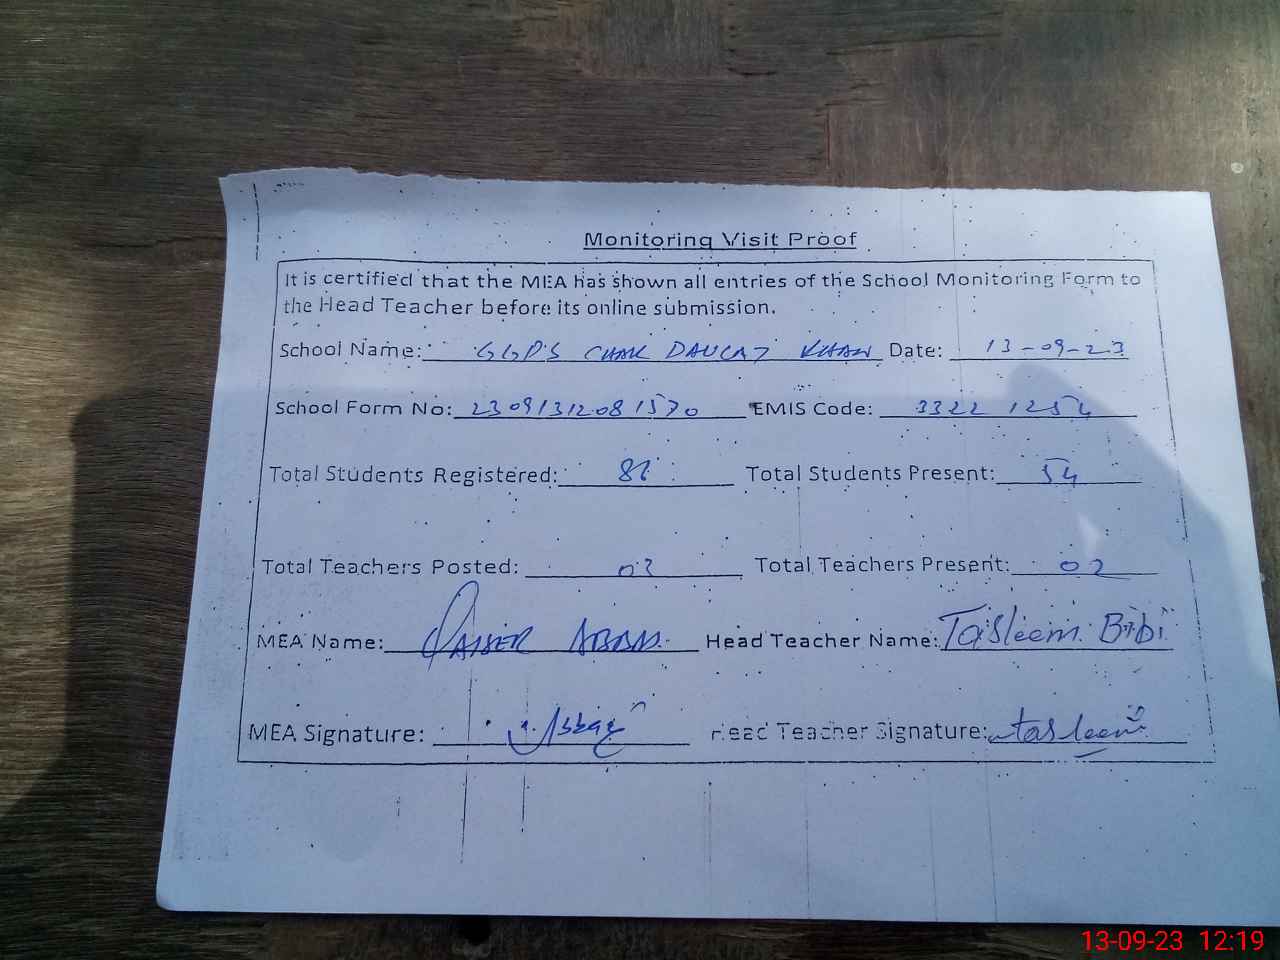 Monitoring Visit Proof
It is certified that the MEA has shown all entries of the School Monitoring Form to
the Head Teacher before its online submission.
School Name: GGPS CHAK DAULAT KHAN Date: 13-09-23
School Form No: 23091312081570 EMIS Code: 33221254
Total Students Registered: Total Students Present: 54
Total Teachers Posted: 02 Total Teachers Present: 02
MEA Name: QAISER ABBAS Head Teacher Name: Tasleem Bibi
MEA Signature: Head Teacher Signature: tasleem
13-09-23 12:19